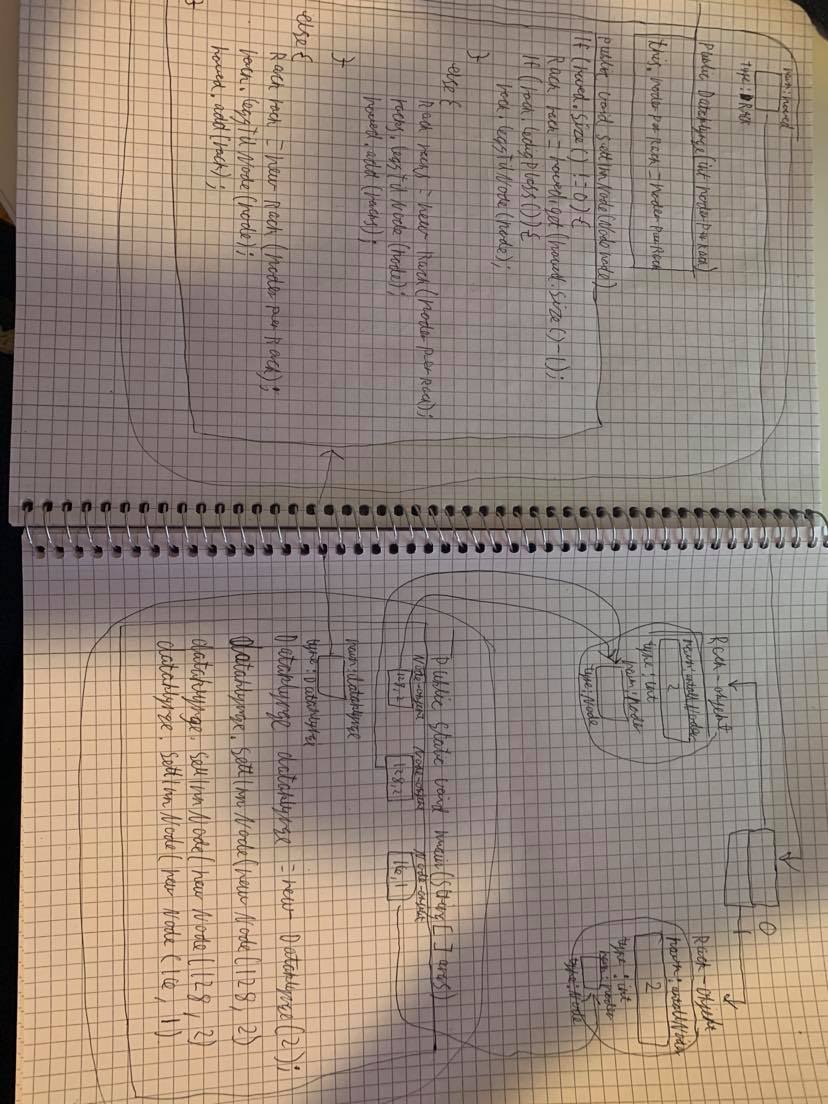 navn: hoved
type: RACK
public Dataklynge(int noderPerRack)
this.noderPerRack = noderPerRack
public void settInnNode(Node node)
if (hoved.size() != 0) {
Rack rack = hoved.get(hoved.size()-1);
if (rack.ledigPlass()) {
rack.leggTilNode(node);
}
else {
Rack racks = new Rack(noderPerRack);
racks.leggTilNode(node);
hoved.add(racks);
}
else {
Rack rack = new Rack (noderPerRack);
rack.leggTilNode(node);
hoved.add(rack);
}
0
1
Rack-objekt
navn: antallNoder
2
type: int
navn: noder
type: Node
Rack-objekt
navn: antallNoder
2
type: int
navn: noder
type: Node
public static void main(String[] args)
Node-objekt Node-objekt Node-objekt
128,2 128,2 16,1
navn: dataklynge
type: Dataklynge
Dataklynge dataklynge = new Dataklynge(2);
dataklynge.settInnNode(new Node(128, 2)
dataklynge.settInnNode(new Node(128, 2)
dataklynge.settInnNode(new Node(16, 1)